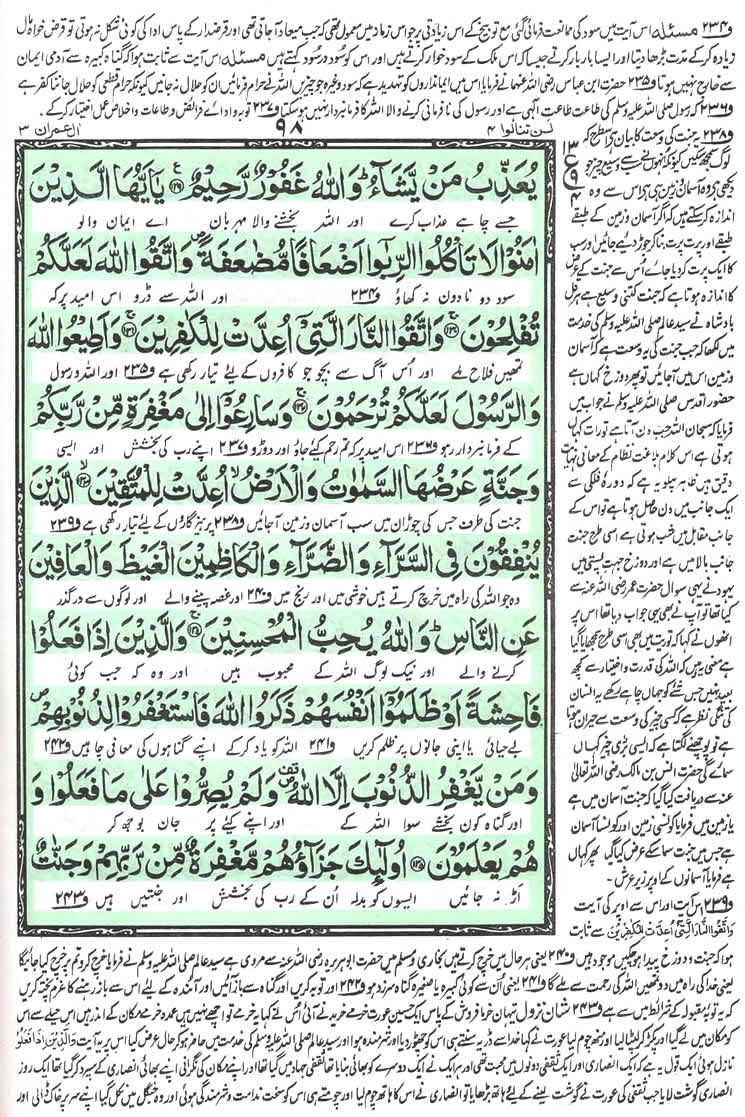 و۲۳۴ مسئلہ اس آیت میں سود کی ممانعت فرمائی گئی مع توبیخ کے اس زیادتی پر جو اس زمانہ میں معمول تھی کہ جب میعاد آجاتی تھی اور قرضدار کے پاس ادا کی کوئی شکل نہ ہوتی تو قرض خواہ مال
زیادہ کرکے مدت بڑھا دیتا اور ایسا بار بار کرتے جیسا کہ اس ملک کے سود خوار کرتے ہیں اور اس کو سود در سود کہتے ہیں مسئلہ اس آیت سے ثابت ہوا گناہ کبیرہ سے آدمی ایمان
سے خارج نہیں ہوتا و۲۳۵ حضرت ابن عباس رضی اللہ عنہما نے فرمایا اس میں ایمانداروں کو تہدید ہے کہ سود وغیرہ جو چیزیں اللہ نے حرام فرمائیں ان کو حلال نہ جانیں کیونکہ حرام قطعی کو حلال جاننا کفر ہے
و۲۳۶ کہ رسول صلی اللہ علیہ وسلم کی طاعت طاعت الٰہی ہے اور رسول کی نافرمانی کرنے والا اللہ کا فرمانبردار نہیں ہوسکتا و۲۳۷ توبہ و ادائے فرائض و طاعات و اخلاص عمل اختیار کرکے۔
اٰل عمرٰن ۳
۹۸
لن تنالوا ۴
یُعَذِّبُ مَنْ یَّشَآءُ وَاللّٰهُ غَفُوْرٌ رَّحِیْمٌ یٰۤاَیُّهَا الَّذِیْنَ
جسے چاہے عذاب کرے اور اللہ بخشنے والا مہربان اے ایمان والو
اٰمَنُوْا لَا تَاْكُلُوا الرِّبٰۤوا اَضْعَافًا مُّضٰعَفَةً وَاتَّقُوا اللّٰهَ لَعَلَّكُمْ
سود دونا دون نہ کھاؤ و۲۳۴ اور اللہ سے ڈرو اس امید پر کہ
تُفْلِحُوْنَ وَاتَّقُوا النَّارَ الَّتِیْۤ اُعِدَّتْ لِلْكٰفِرِیْنَ وَاَطِیْعُوا اللّٰهَ
تمھیں فلاح ملے اور اُس آگ سے بچو جو کافروں کے لیئے تیار رکھی ہے و۲۳۵ اور اللہ و رسول
وَالرَّسُوْلَ لَعَلَّكُمْ تُرْحَمُوْنَ وَسَارِعُوْۤا اِلٰى مَغْفِرَةٍ مِّنْ رَّبِّكُمْ
کے فرمانبردار رہو و۲۳۶ اس امید پر کہ تم رحم کیئے جاؤ اور دوڑو و۲۳۷ اپنے رب کی بخشش اور ایسی
وَجَنَّةٍ عَرْضُهَا السَّمٰوٰتُ وَالْاَرْضُ اُعِدَّتْ لِلْمُتَّقِیْنَ الَّذِیْنَ
جنت کی طرف جس کی چوڑان میں سب آسمان و زمین آجائیں و۲۳۸ پرہیزگاروں کے لیئے تیار رکھی ہے و۲۳۹
یُنْفِقُوْنَ فِی السَّرَّآءِ وَالضَّرَّآءِ وَالْكَاظِمِیْنَ الْغَیْظَ وَالْعَافِیْنَ
وہ جو اللہ کی راہ میں خرچ کرتے ہیں خوشی میں اور رنج میں و۲۴۰ اور غصہ پینے والے اور لوگوں سے درگذر
عَنِ النَّاسِ وَاللّٰهُ یُحِبُّ الْمُحْسِنِیْنَ وَالَّذِیْنَ اِذَا فَعَلُوْا
کرنے والے اور نیک لوگ اللہ کے محبوب ہیں اور وہ کہ جب کوئی
فَاحِشَةً اَوْ ظَلَمُوْۤا اَنْفُسَهُمْ ذَكَرُوا اللّٰهَ فَاسْتَغْفَرُوْا لِذُنُوْبِهِمْ
بے حیائی یا اپنی جانوں پر ظلم کریں و۲۴۱ اللہ کو یاد کرکے اپنے گناہوں کی معافی چاہیں و۲۴۲
وَمَنْ یَّغْفِرُ الذُّنُوْبَ اِلَّا اللّٰهُ وَلَمْ یُصِرُّوْا عَلٰى مَا فَعَلُوْا وَ
اور گناہ کون بخشے سوا اللہ کے اور اپنے کیئے پر جان بوجھ کر
هُمْ یَعْلَمُوْنَ اُولٰٓىِٕكَ جَزَآؤُهُمْ مَّغْفِرَةٌ مِّنْ رَّبِّهِمْ وَجَنّٰتٌ
اَڑ نہ جائیں ایسوں کو بدلہ اُن کے رب کی بخشش اور جنتیں ہیں و۲۴۳
و۲۳۸ جنت کی وسعت کا بیان اس طرح کہ
لوگ سمجھ سکیں کیونکہ انہوں نے سب سے وسیع چیز جو
دیکھی وہ آسمان و زمین ہی ہے اس سے وہ
اندازہ کرسکتے ہیں کہ اگر آسمان و زمین کے طبقے
طبقے اور پرت پرت بنا کر جوڑ دیئے جائیں اور سب
کا ایک پرت کردیا جائے اُس سے جنت کے عرض
کا اندازہ ہوتا ہے کہ جنت کتنی وسیع ہے ہرقل
بادشاہ نے سید عالم صلی اللہ علیہ وسلم کی خدمت
میں لکھا کہ جب جنت کی یہ وسعت ہے کہ آسمان
و زمین اس میں آجائیں تو پھر دوزخ کہاں ہے
حضور اقدس صلی اللہ علیہ وسلم نے جواب میں
فرمایا کہ سبحان اللہ جب دن آتا ہے تو رات کہاں
ہوتی ہے اس کلام بلاغت نظام کے معانی نہایت
دقیق ہیں ظاہر پہلو یہ ہے کہ دورہ فلکی سے
ایک جانب میں دن حاصل ہوتا ہے تو اس کے
جانب مقابل میں شب ہوتی ہے اسی طرح جنت
جانب بالا میں ہے اور دوزخ جہت پستی میں
یہود نے یہی سوال حضرت عمر رضی اللہ عنہ سے
کیا تھا تو آپ نے بھی یہی جواب دیا تھا اس پر
انھوں نے کہا کہ توریت میں بھی اسی طرح سمجھایا گیا
ہے معنی یہ ہیں کہ اللہ کی قدرت و اختیار سے کچھ
بعید نہیں جس شے کو جہاں چاہے رکھے یہ انسان
کی تنگی نظر ہے کہ کسی چیز کی وسعت سے حیران ہوتا
ہے تو پوچھنے لگتا ہے کہ ایسی بڑی چیز کہاں
سمائے گی حضرت انس بن مالک رضی اللہ تعالیٰ
عنہ سے دریافت کیا گیا کہ جنت آسمان میں ہے
یا زمین میں فرمایا کونسی زمین اور کونسا آسمان
ہے جس میں جنت سما سکے عرض کیا گیا پھر کہاں
ہے فرمایا آسمانوں کے اوپر زیر عرش۔
و۲۳۹ اس آیت اور اس سے اوپر کی آیت
وَاتَّقُوا النَّارَ الَّتِیْۤ اُعِدَّتْ لِلْكٰفِرِیْنَ سے ثابت
ہوا کہ جنت دوزخ پیدا ہوچکیں موجود ہیں و۲۴۰ یعنی ہر حال میں خرچ کرتے ہیں بخاری و مسلم میں حضرت ابوہریرہ رضی اللہ عنہ سے مروی ہے سید عالم صلی اللہ علیہ وسلم نے فرمایا خرچ کرو تم پر خرچ کیا جائیگا
یعنی خدا کی راہ میں دو تمھیں اللہ کی رحمت سے ملے گا و۲۴۱ یعنی اُن سے کوئی کبیرہ یا صغیرہ گناہ سرزد ہو و۲۴۲ اور توبہ کریں اور گناہ سے باز آئیں اور آئندہ کے لئے اس سے باز رہنے کا عزم پختہ کریں
کہ یہ توبہ مقبولہ کے شرائط میں سے ہے و۲۴۳ شان نزول تیہان خرما فروش کے پاس ایک حسین عورت خرمے خریدنے آئی اُس نے کہا یہ خرمے تو اچھے نہیں ہیں عمدہ خرمے مکان کے اندر ہیں اس حیلے سے اس
کو مکان میں لے گیا اور پکڑ کر لپٹا لیا اور منھ چوم لیا عورت نے کہا خدا سے ڈر یہ سنتے ہی اس کو چھوڑ دیا اور شرمندہ ہوا اور سید عالم صلی اللہ علیہ وسلم کی خدمت میں حاضر ہوکر حال عرض کیا اس پر یہ آیت وَالَّذِیْنَ اِذَا فَعَلُوْا
نازل ہوئی ایک قول یہ ہے کہ ایک انصاری اور ایک ثقفی دونوں میں محبت تھی اور ہر ایک نے ایک دوسرے کو بھائی بنایا تھا ثقفی جہاد میں گیا تھا اور اپنے مکان کی نگرانی اپنے بھائی انصاری کے سپرد کر گیا تھا ایک روز
انصاری گوشت لایا جب ثقفی کی عورت نے گوشت لینے کے لیئے ہاتھ بڑھایا تو انصاری نے اس کا ہاتھ چوم لیا اور چومتے ہی اس کو سخت ندامت و شرمندگی ہوئی اور وہ جنگل میں نکل گیا اپنے سر پر خاک ڈالی اور